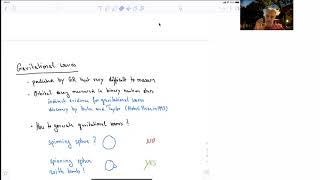 Gravitational waves
- predicted by GR but very difficult to measure
- Orbital decay measured in binary neutron stars
indirect evidence for gravitational waves
discovery by Hulse and Taylor (Nobel Prize in 1993)
- How to generate gravitational waves?
spinning sphere? NO
spinning sphere with bumb? YES